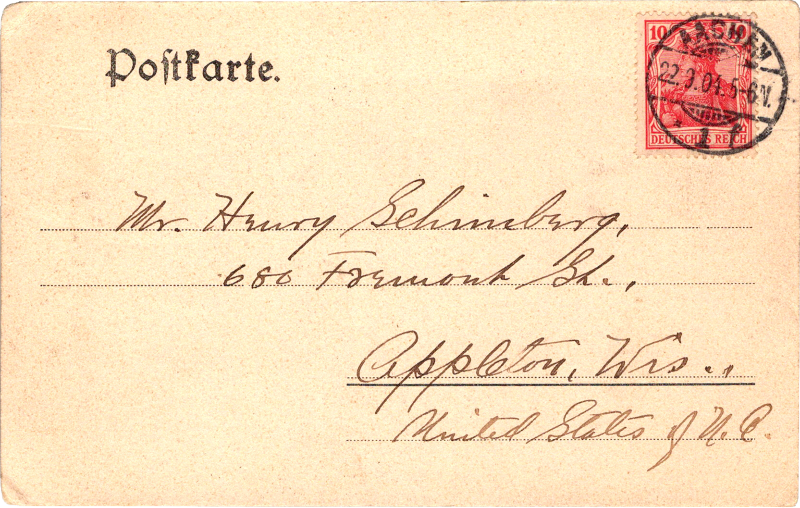 Postkarte.
10 10
AACHEN
22.9.04.5-6V.
* 1 f
DEUTSCHES REICH
Mr. Henry Schimberg,
680 Fremont St.,
Appleton, Wis.,
United States of N. A.